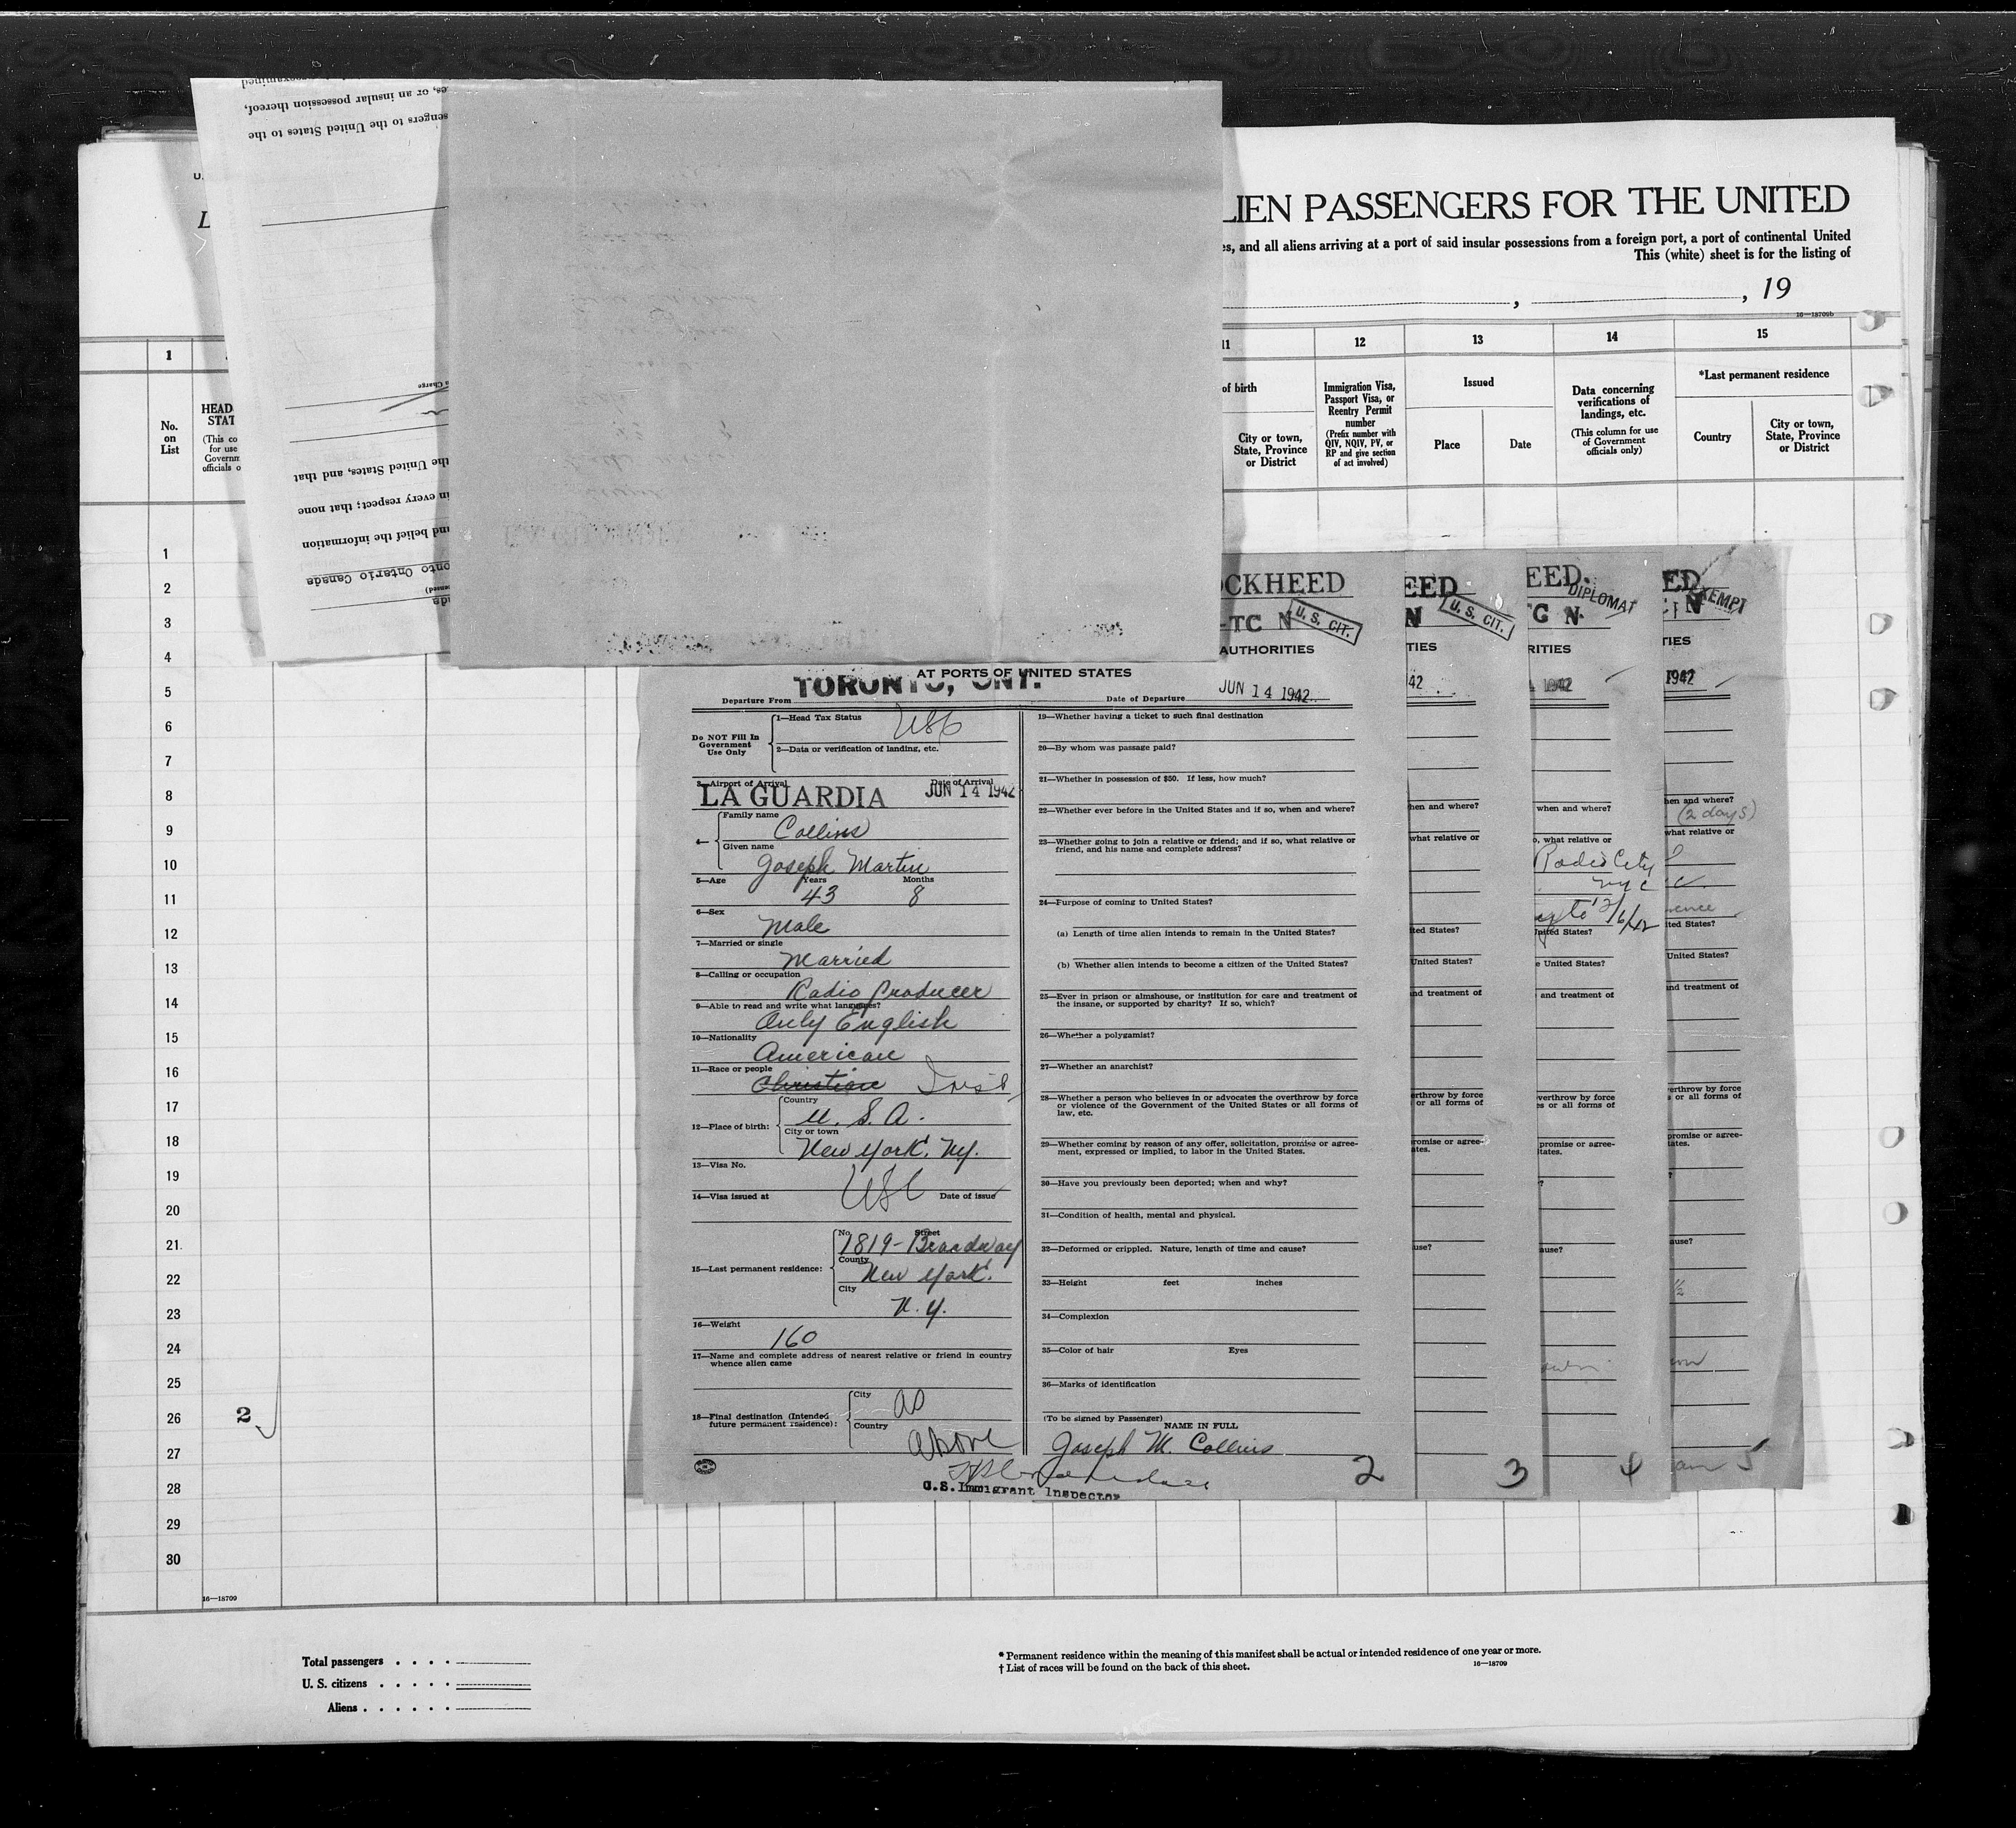 examined
es, or an insular possession thereof,
sengers to the United States to the
a Charge
the United States, and that
in every respect; that none
und belief the information
onto Ontario Canada
U.
L
LIEN PASSENGERS FOR THE UNITED
es, and all aliens arriving at a port of said insular possessions from a foreign port, a port of continental United
This (white) sheet is for the listing of
, , 19
16—18709b
1 11 12 13 14 15
No.
on
List
HEAD
STAT
(This co
for use
Governm
officials o
of birth
City or town,
State, Province
or District
Immigration Visa,
Passport Visa, or
Reentry Permit
number
(Prefix number with
QIV, NQIV, PV, or
RP and give section
of act involved)
Issued
Place Date
Data concerning
verifications of
landings, etc.
(This column for use
of Government
officials only)
*Last permanent residence
Country
City or town,
State, Province
or District
1
2
3
4
5
6
7
8
9
10
11
12
13
14
15
16
17
18
19
20
21
22
23
24
25
26 2
27
28
29
30
16—18709
OCKHEED
-TC N U. S. CIT.
AUTHORITIES
AT PORTS OF UNITED STATES
Departure From TORONTO, ONT.
Date of Departure JUN 14 1942
Do NOT Fill In
Government
Use Only
1—Head Tax Status USC
2—Data or verification of landing, etc.
3—Airport of Arrival Date of Arrival
LA GUARDIA JUN 14 1942
4— Family name
Collins
Given name
Joseph Martin
5—Age Years Months
43 8
6—Sex
Male
7—Married or single
Married
8—Calling or occupation
Radio Producer
9—Able to read and write what languages?
Only English
10—Nationality
American
11—Race or people
Christian Irish
12—Place of birth: Country
U. S. A.
City or town
New York, NY.
13—Visa No.
USC
14—Visa issued at Date of issue
15—Last permanent residence: No. Street
1819-Broadway
County
New York.
City
N. Y.
16—Weight
160
17—Name and complete address of nearest relative or friend in country
whence alien came
18—Final destination (Intended
future permanent residence):
City as
Country
above
U.S. Immigrant Inspector
19—Whether having a ticket to such final destination
20—By whom was passage paid?
21—Whether in possession of $50. If less, how much?
22—Whether ever before in the United States and if so, when and where?
23—Whether going to join a relative or friend; and if so, what relative or
friend, and his name and complete address?
24—Purpose of coming to United States?
(a) Length of time alien intends to remain in the United States?
(b) Whether alien intends to become a citizen of the United States?
25—Ever in prison or almshouse, or institution for care and treatment of
the insane, or supported by charity? If so, which?
26—Whether a polygamist?
27—Whether an anarchist?
28—Whether a person who believes in or advocates the overthrow by force
or violence of the Government of the United States or all forms of
law, etc.
29—Whether coming by reason of any offer, solicitation, promise or agree-
ment, expressed or implied, to labor in the United States.
30—Have you previously been deported; when and why?
31—Condition of health, mental and physical.
32—Deformed or crippled. Nature, length of time and cause?
33—Height feet inches
34—Complexion
35—Color of hair Eyes
36—Marks of identification
(To be signed by Passenger)
NAME IN FULL
Joseph M. Collins
2
EED
N U. S. CIT.
TIES
42
hen and where?
what relative or
ited States?
United States?
nd treatment of
erthrow by force
or all forms of
romise or agree-
ates.
use?
3
EED.
DIPLOMAT
G N
RITIES
1942
when and where?
o, what relative or
Radio City
NYC
United States?
e United States?
and treatment of
verthrow by force
es or all forms of
promise or agree-
tates.
?
ause?
4
ED
EXEMPT
N
TIES
1942
hen and where?
(2 days)
what relative or
ited States?
United States?
nd treatment of
erthrow by force
s or all forms of
promise or agree-
tates.
?
ause?
½
5
Total passengers . . . .
U. S. citizens . . . . .
Aliens . . . . . .
* Permanent residence within the meaning of this manifest shall be actual or intended residence of one year or more.
† List of races will be found on the back of this sheet.
16—18709